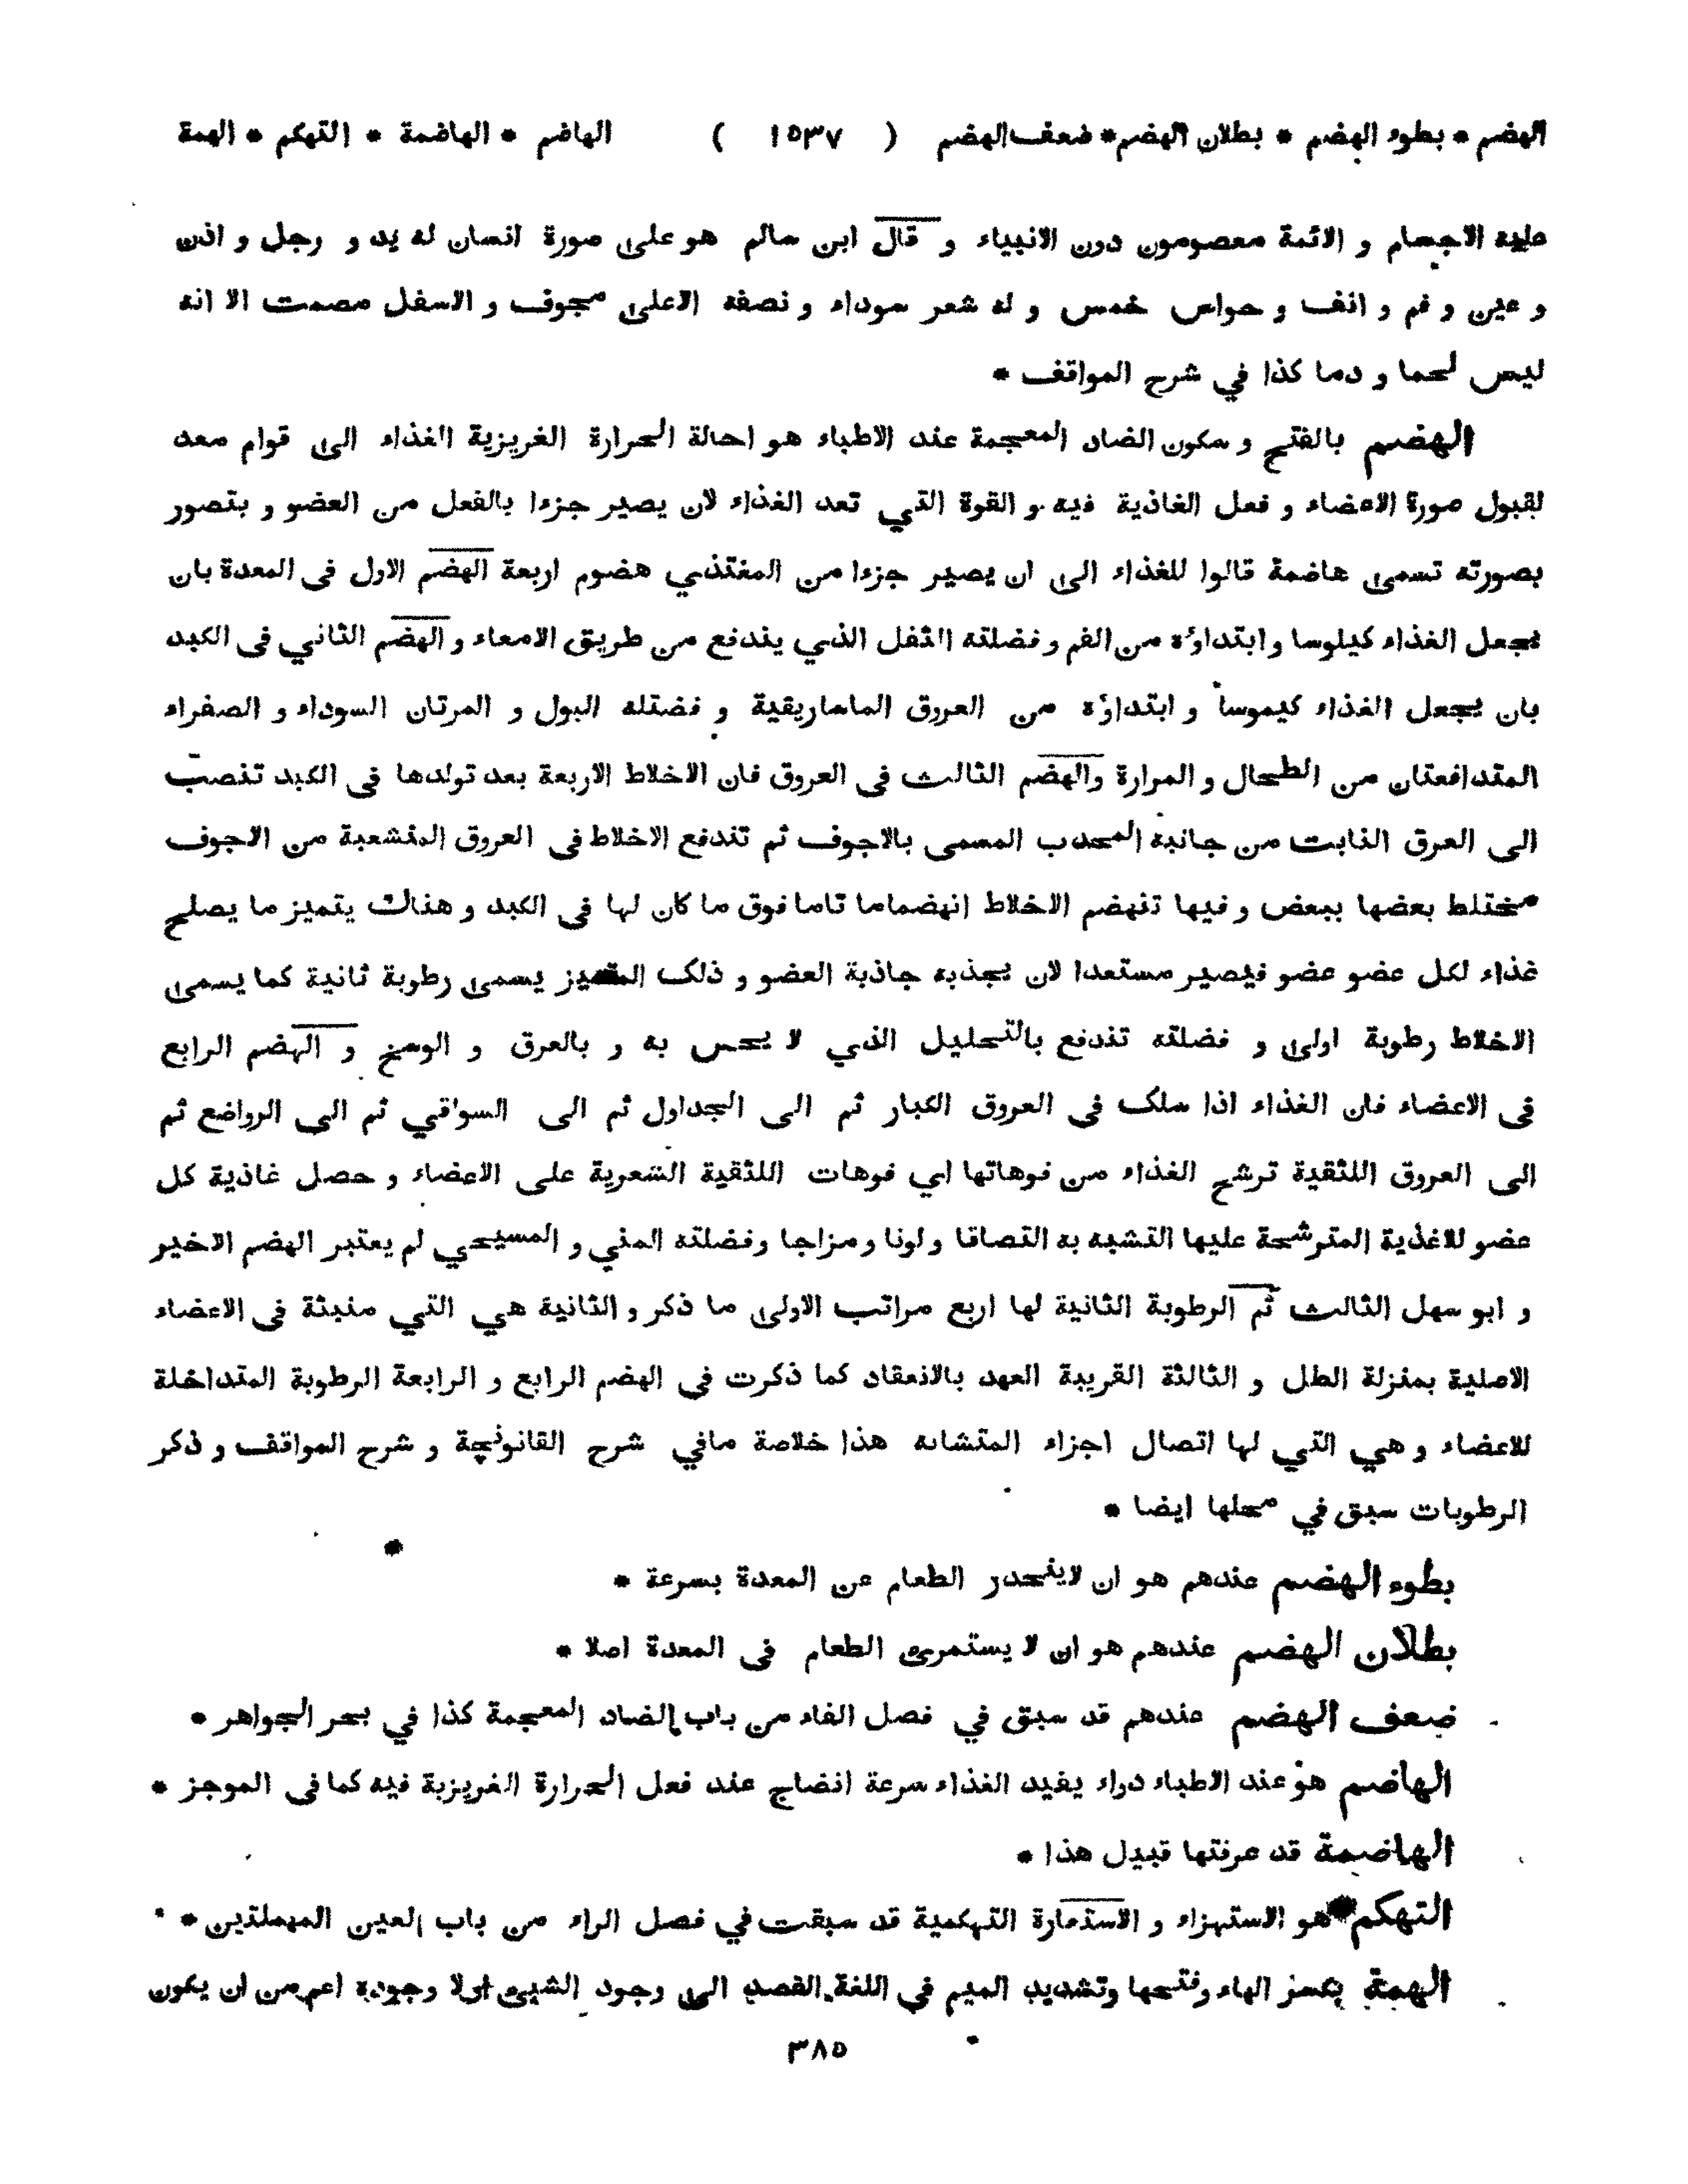 الهضم * بطوء الهضم * بطلان الهضم * ضعف الهضم ( ١٥٣٧ ) الهاضم * الهاضمة * التهكم * الهمة
عليه الاجسام و الائمة معصومون دون الانبياء و قال ابن سالم هو على صورة انسان له يد و رجل و اذن
و عين و فم و انف و حواس خمس و له شعر سوداء و نصفه الاعلى مجوف و الاسفل مصمت الا انه
ليس لحما و دما كذا في شرح المواقف *
الهضم بالفتح و سكون الضاد المعجمة عند الاطباء هو احالة الحرارة الغريزية الغذاء الى قوام معد
لقبول صورة الاعضاء و فعل الغاذية فيه و القوة التي تعد الغذاء لان يصير جزءا بالفعل من العضو و بتصور
بصورته تسمى هاضمة قالوا للغذاء الى ان يصير جزءا من المغتذي هضوم اربعة الهضم الاول فى المعدة بان
يجعل الغذاء كيلوسا و ابتداؤه من الفم و فضلته الثفل الذي يندفع من طريق الامعاء و الهضم الثاني فى الكبد
بان يجعل الغذاء كيموسا و ابتداؤه من العروق الماساريقية و فضتله البول و المرتان السوداء و الصفراء
المتدافعتان من الطحال و المرارة والهضم الثالث فى العروق فان الاخلاط الاربعة بعد تولدها فى الكبد تنصب
الى العرق النابت من جانبه المحدب المسمى بالاجوف ثم تندفع الاخلاط فى العروق المنشعبة من الاجوف
مختلط بعضها ببعض و فيها تنهضم الاخلاط انهضماما تاما فوق ما كان لها فى الكبد و هناك يتميز ما يصلح
غذاء لكل عضو عضو فيصير مستعدا لان يجذبه جاذبة العضو و ذلك المتميز يسمى رطوبة ثانية كما يسمى
الاخلاط رطوبة اولى و فضلته تندفع بالتحليل الذي لا يحس به و بالعرق و الوسخ و الهضم الرابع
فى الاعضاء فان الغذاء اذا سلك فى العروق الكبار ثم الى الجداول ثم الى السواقي ثم الى الرواضع ثم
الى العروق اللثقية ترشح الغذاء من فوهاتها اي فوهات اللثقية الشعرية على الاعضاء و حصل غاذية كل
عضو للاغذية المترشحة عليها التشبه به التصاقا و لونا و مزاجا و فضلته المني و المسيحي لم يعتبر الهضم الاخير
و ابو سهل الثالث ثم الرطوبة الثانية لها اربع مراتب الاولى ما ذكر و الثانية هي التي منبثة فى الاعضاء
الاصلية بمنزلة الطل و الثالثة القريبة العهد بالانعقاد كما ذكرت فى الهضم الرابع و الرابعة الرطوبة المتداخلة
للاعضاء و هي التي لها اتصال اجزاء المتشابه هذا خلاصة مافي شرح القانونچة و شرح المواقف و ذكر
الرطوبات سبق في محلها ايضا *
بطوء الهضم عندهم هو ان لاينحدر الطعام عن المعدة بسرعة *
بطلان الهضم عندهم هو ان لا يستمرى الطعام فى المعدة اصلا *
ضعف الهضم عندهم قد سبق في فصل الفاء من باب الضاد المعجمة كذا في بحر الجواهر *
الهاضم هو عند الاطباء دواء يفيد الغذاء سرعة انضاج عند فعل الحرارة الغريزية فيه كما فى الموجز *
الهاضمة قد عرفتها قبيل هذا *
التهكم هو الاستهزاء و الاستعارة التهكمية قد سبقت في فصل الراء من باب العين المهملتين *
الهمة بكسر الهاء وفتحها وتشديد الميم في اللغة القصد الى وجود الشيئ اولا وجوده اعم من ان يكون
٣٨٥